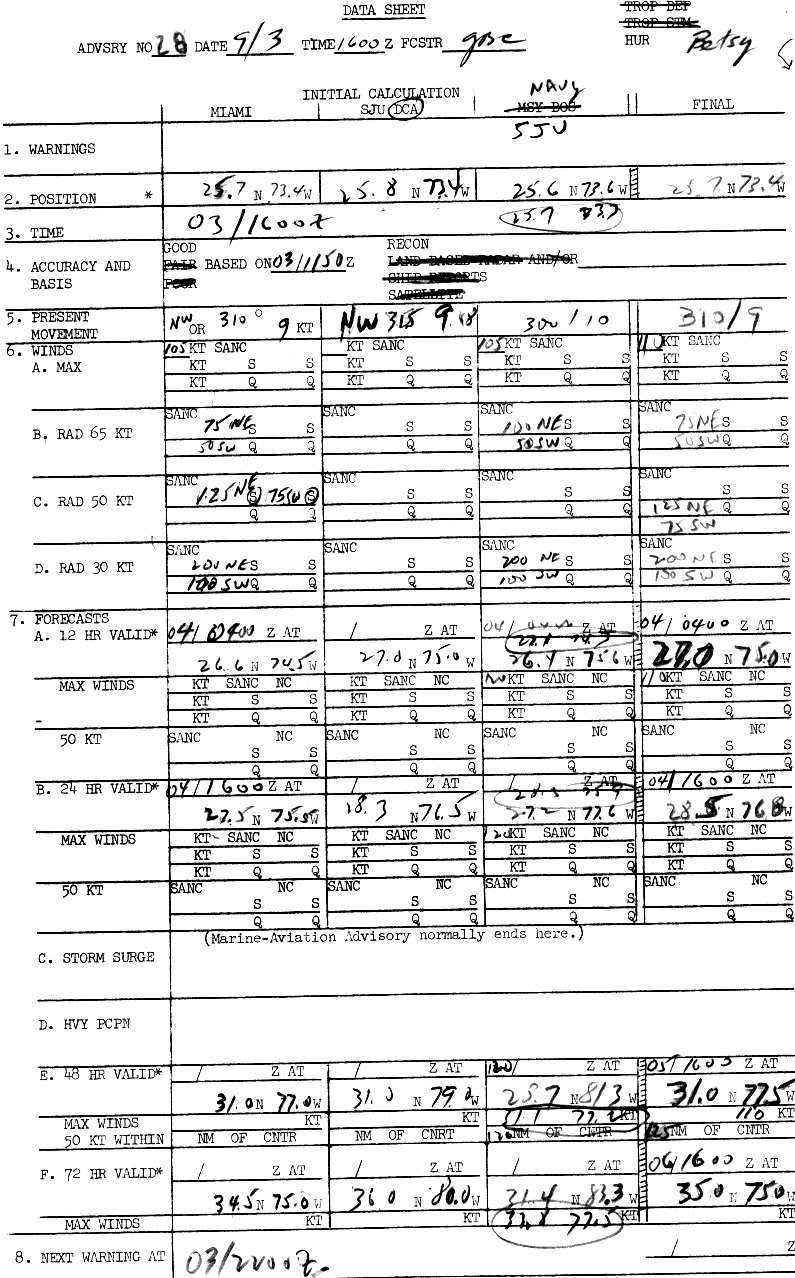 DATA SHEET
TROP DEP
TROP STM
ADVSRY NO 28 DATE 9/3 TIME 1600Z FCSTR
HUR Betsy
INITIAL CALCULATION
NAVY
MIAMI SJU DCA MSY BOS FINAL
SJU
1. WARNINGS
2. POSITION * 25.7 N 73.4 W 25.8 N 73.4 W 25.6 N 73.6 W 25.7 N 73.4 W
3. TIME 03/1600Z
GOOD RECON
4. ACCURACY AND FAIR BASED ON 03/1150Z LAND BASED RADAR AND/OR
BASIS POOR SHIP REPORTS
SATELLITE
5. PRESENT NW OR 310° 9 KT NW 315 9 300/10 310/9
MOVEMENT
6. WINDS 105 KT SANC KT SANC 105 KT SANC 110 KT SANC
A. MAX KT S S KT S S KT S S KT S S
KT Q Q KT Q Q KT Q Q KT Q Q
SANC SANC SANC SANC
B. RAD 65 KT 75 NE S S S S 100 NE S S 75 NE S S
50 SW Q Q Q Q 50 SW Q Q 50 SW Q Q
SANC SANC SANC SANC
C. RAD 50 KT 125 NE S 75 SW S S S S S S S
Q Q Q Q Q Q 125 NE Q Q
75 SW
SANC SANC SANC SANC
D. RAD 30 KT 200 NE S S S S 200 NE S S 200 NE S S
100 SW Q Q Q Q 100 SW Q Q 100 SW Q Q
7. FORECASTS
A. 12 HR VALID* 04/0400 Z AT / Z AT 04/ Z AT 04/0400 Z AT
26.6 N 74.5 W 27.0 N 75.0 W 26.4 N 75.6 W 27.0 N 75.0 W
MAX WINDS KT SANC NC KT SANC NC KT SANC NC 110 KT SANC NC
KT S S KT S S KT S S KT S S
KT Q Q KT Q Q KT Q Q KT Q Q
50 KT SANC NC SANC NC SANC NC SANC NC
S S S S S S S S
Q Q Q Q Q Q Q Q
B. 24 HR VALID* 04/1600 Z AT / Z AT / Z AT 04/1600 Z AT
27.5 N 75.5 W 18.3 N 76.5 W 27.2 N 77.6 W 28.5 N 76.8 W
MAX WINDS KT SANC NC KT SANC NC 120 KT SANC NC KT SANC NC
KT S S KT S S KT S S KT S S
KT Q Q KT Q Q KT Q Q KT Q Q
50 KT SANC NC SANC NC SANC NC SANC NC
S S S S S S S S
Q Q Q Q Q Q Q Q
(Marine-Aviation Advisory normally ends here.)
C. STORM SURGE
D. HVY PCPN
E. 48 HR VALID* / Z AT / Z AT / Z AT 05/1600 Z AT
31.0 N 77.0 W 31.0 N 79.0 W 28.7 N 81.3 W 31.0 N 77.5 W
MAX WINDS KT KT KT 110 KT
50 KT WITHIN NM OF CNTR NM OF CNRT 120 NM OF CNTR 125 NM OF CNTR
F. 72 HR VALID* / Z AT / Z AT / Z AT 06/1600 Z AT
34.5 N 75.0 W 36.0 N 80.0 W 31.4 N 83.3 W 35.0 N 75.0 W
MAX WINDS KT KT 32.8 77.5 KT KT
8. NEXT WARNING AT 03/2200Z / Z